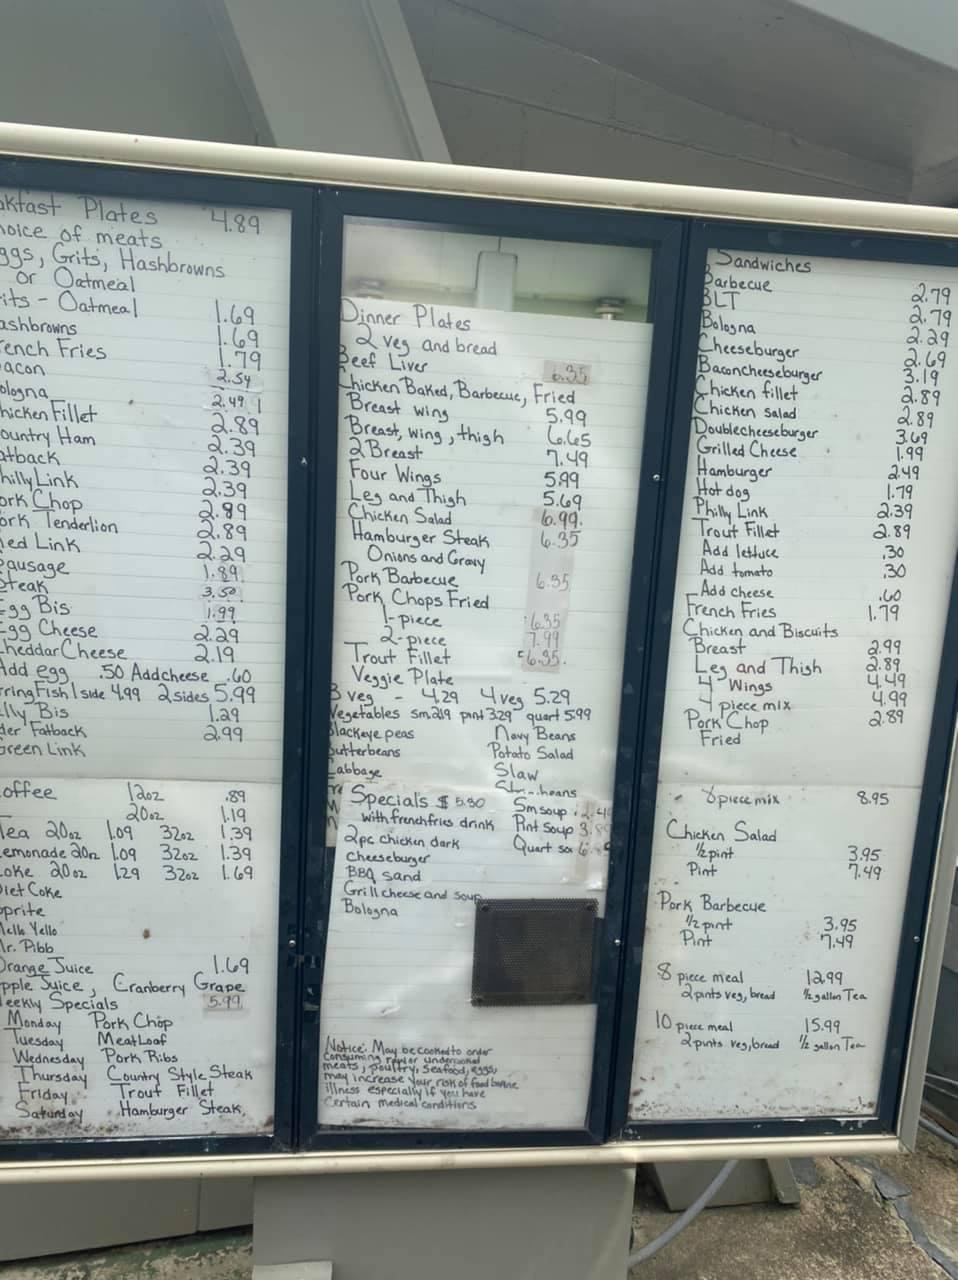 kfast Plates 4.89
hoice of meats
ggs, Grits, Hashbrowns
or Oatmeal
its - Oatmeal 1.69
ashbrowns 1.69
rench Fries 1.79
acon 2.54
ologna 2.49
hicken Fillet 2.89
ountry Ham 2.39
atback 2.39
hilly Link 2.39
ork Chop 2.89
ork Tenderlion 2.89
ed Link 2.29
ausage 1.89
Steak 3.50
Egg Bis 1.99
Egg Cheese 2.29
heddar Cheese 2.19
Add egg .50 Add cheese .60
rring Fish 1 side 4.99 2 sides 5.99
lly Bis 1.29
der Fatback 2.99
Green Link
offee 12oz .89
20oz 1.19
Tea 20oz 1.09 32oz 1.39
emonade 20oz 1.09 32oz 1.39
oke 20oz 1.29 32oz 1.69
iet Coke
prite
Mello Yello
Mr. Pibb
Orange Juice 1.69
pple Juice, Cranberry Grape
eekly Specials 5.99
Monday Pork Chop
Tuesday Meat Loaf
Wednesday Pork Ribs
Thursday Country Style Steak
Friday Trout Fillet
Saturday Hamburger Steak
Dinner Plates
2 veg and bread
Beef Liver 6.35
Chicken Baked, Barbecue, Fried
Breast wing 5.99
Breast, wing, thigh 6.65
2 Breast 7.49
Four Wings 5.99
Leg and Thigh 5.69
Chicken Salad 6.99
Hamburger Steak 6.35
Onions and Gravy
Pork Barbecue 6.35
Pork Chops Fried
1-piece 6.35
2-piece 7.99
Trout Fillet 6.35
Veggie Plate
3 veg - 4.29 4 veg 5.29
Vegetables sm 2.19 pint 3.29 quart 5.99
Blackeye peas Navy Beans
Butterbeans Potato Salad
Cabbage Slaw
Specials $ 5.30 Sm soup
with french fries drink Pint Soup
2pc chicken dark Quart
cheeseburger
BBQ sand
Grill cheese and soup
Bologna
Notice: May be cooked to order
consuming raw or undercooked
meats, poultry, seafood, eggs,
may increase your risk of food borne
illness especially if you have
certain medical conditions
Sandwiches
Barbecue 2.79
BLT 2.79
Bologna 2.29
Cheeseburger 2.69
Baconcheeseburger 3.19
Chicken fillet 2.89
Chicken salad 2.89
Doublecheeseburger 3.69
Grilled Cheese 1.99
Hamburger 2.49
Hot dog 1.79
Philly Link 2.39
Trout Fillet 2.89
Add lettuce .30
Add tomato .30
Add cheese .60
French Fries 1.79
Chicken and Biscuits
Breast 2.99
Leg and Thigh 2.89
4 Wings 4.49
4 piece mix 4.99
Pork Chop 2.89
Fried
8 piece mix 8.95
Chicken Salad
1/2 pint 3.95
Pint 7.49
Pork Barbecue
1/2 pint 3.95
Pint 7.49
8 piece meal 12.99
2 pints veg, bread 1/2 gallon Tea
10 piece meal 15.99
2 pints veg, bread 1/2 gallon Tea